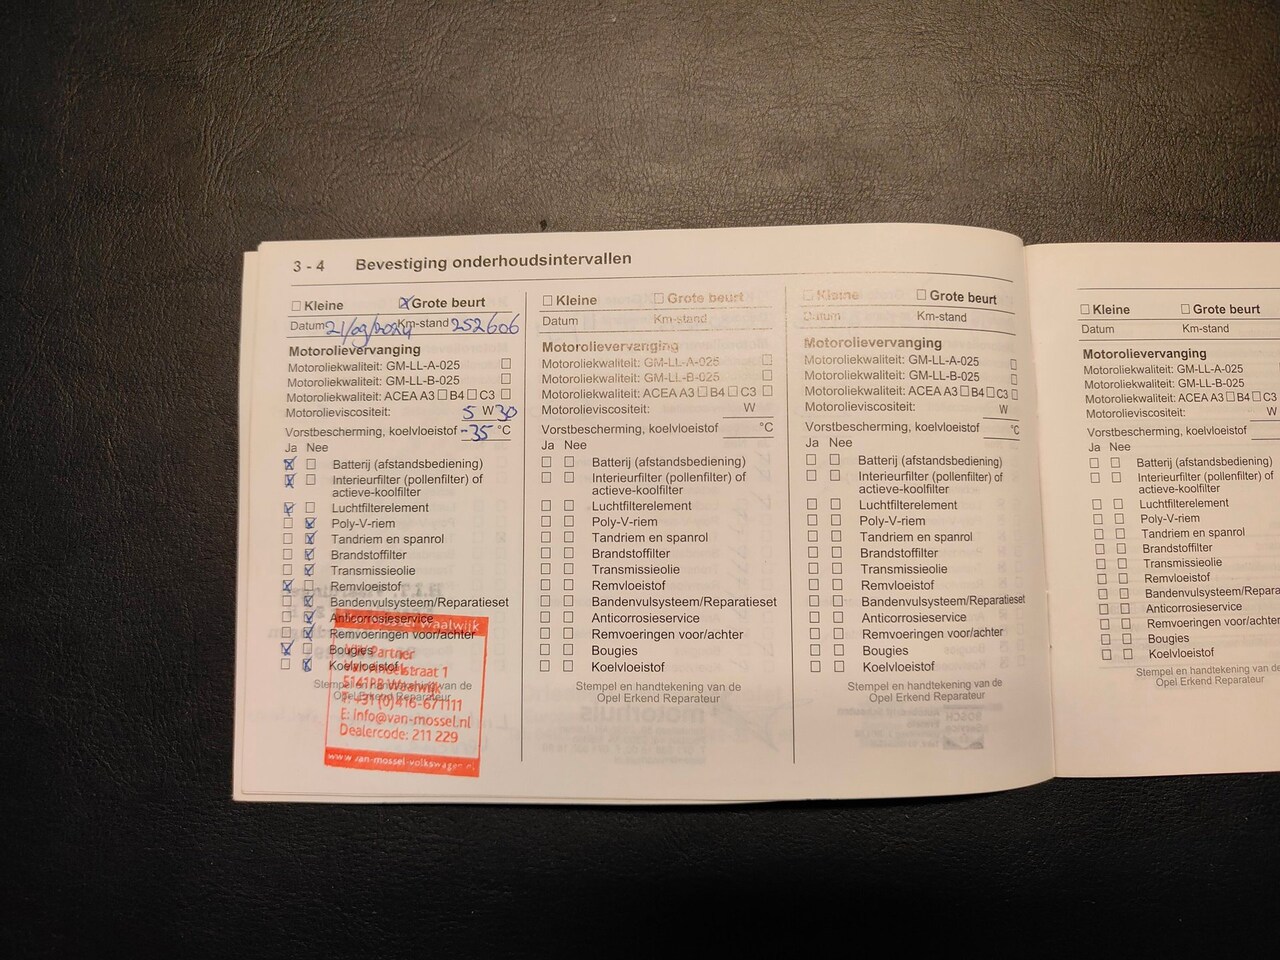 3 - 4 Bevestiging onderhoudsintervallen
☐ Kleine ☒ Grote beurt
Datum 21/09/2024 Km-stand 252606
Motorolievervanging
Motoroliekwaliteit: GM-LL-A-025 ☐
Motoroliekwaliteit: GM-LL-B-025 ☐
Motoroliekwaliteit: ACEA A3 ☐ B4 ☐ C3 ☐
Motorolieviscositeit: 5 W 30
Vorstbescherming, koelvloeistof -35 °C
Ja Nee
☒ ☐ Batterij (afstandsbediening)
☒ ☐ Interieurfilter (pollenfilter) of
actieve-koolfilter
☒ ☐ Luchtfilterelement
☐ ☒ Poly-V-riem
☐ ☒ Tandriem en spanrol
☐ ☒ Brandstoffilter
☐ ☒ Transmissieolie
☒ ☐ Remvloeistof
☐ ☒ Bandenvulsysteem/Reparatieset
☐ ☒ Anticorrosieservice
☐ ☒ Remvoeringen voor/achter
☒ ☐ Bougies
☐ ☒ Koelvloeistof
Stempel en handtekening van de
Opel Erkend Reparateur
Van Mossel Waalwijk
Partner
straat 1
Waalwijk
T: +31 (0)416-671111
E: info@van-mossel.nl
Dealercode: 211 229
www.van-mossel-volkswagen.nl
☐ Kleine ☐ Grote beurt
Datum Km-stand
Motorolievervanging
Motoroliekwaliteit: GM-LL-A-025 ☐
Motoroliekwaliteit: GM-LL-B-025 ☐
Motoroliekwaliteit: ACEA A3 ☐ B4 ☐ C3 ☐
Motorolieviscositeit: W
Vorstbescherming, koelvloeistof °C
Ja Nee
☐ ☐ Batterij (afstandsbediening)
☐ ☐ Interieurfilter (pollenfilter) of
actieve-koolfilter
☐ ☐ Luchtfilterelement
☐ ☐ Poly-V-riem
☐ ☐ Tandriem en spanrol
☐ ☐ Brandstoffilter
☐ ☐ Transmissieolie
☐ ☐ Remvloeistof
☐ ☐ Bandenvulsysteem/Reparatieset
☐ ☐ Anticorrosieservice
☐ ☐ Remvoeringen voor/achter
☐ ☐ Bougies
☐ ☐ Koelvloeistof
Stempel en handtekening van de
Opel Erkend Reparateur
☐ Kleine ☐ Grote beurt
Datum Km-stand
Motorolievervanging
Motoroliekwaliteit: GM-LL-A-025 ☐
Motoroliekwaliteit: GM-LL-B-025 ☐
Motoroliekwaliteit: ACEA A3 ☐ B4 ☐ C3 ☐
Motorolieviscositeit: W
Vorstbescherming, koelvloeistof °C
Ja Nee
☐ ☐ Batterij (afstandsbediening)
☐ ☐ Interieurfilter (pollenfilter) of
actieve-koolfilter
☐ ☐ Luchtfilterelement
☐ ☐ Poly-V-riem
☐ ☐ Tandriem en spanrol
☐ ☐ Brandstoffilter
☐ ☐ Transmissieolie
☐ ☐ Remvloeistof
☐ ☐ Bandenvulsysteem/Reparatieset
☐ ☐ Anticorrosieservice
☐ ☐ Remvoeringen voor/achter
☐ ☐ Bougies
☐ ☐ Koelvloeistof
Stempel en handtekening van de
Opel Erkend Reparateur
☐ Kleine ☐ Grote beurt
Datum Km-stand
Motorolievervanging
Motoroliekwaliteit: GM-LL-A-025
Motoroliekwaliteit: GM-LL-B-025
Motoroliekwaliteit: ACEA A3 ☐ B4 ☐ C3
Motorolieviscositeit: W
Vorstbescherming, koelvloeistof
Ja Nee
☐ ☐ Batterij (afstandsbediening)
☐ ☐ Interieurfilter (pollenfilter) of
actieve-koolfilter
☐ ☐ Luchtfilterelement
☐ ☐ Poly-V-riem
☐ ☐ Tandriem en spanrol
☐ ☐ Brandstoffilter
☐ ☐ Transmissieolie
☐ ☐ Remvloeistof
☐ ☐ Bandenvulsysteem/Repara
☐ ☐ Anticorrosieservice
☐ ☐ Remvoeringen voor/achter
☐ ☐ Bougies
☐ ☐ Koelvloeistof
Stempel en handtekening van de
Opel Erkend Reparateur